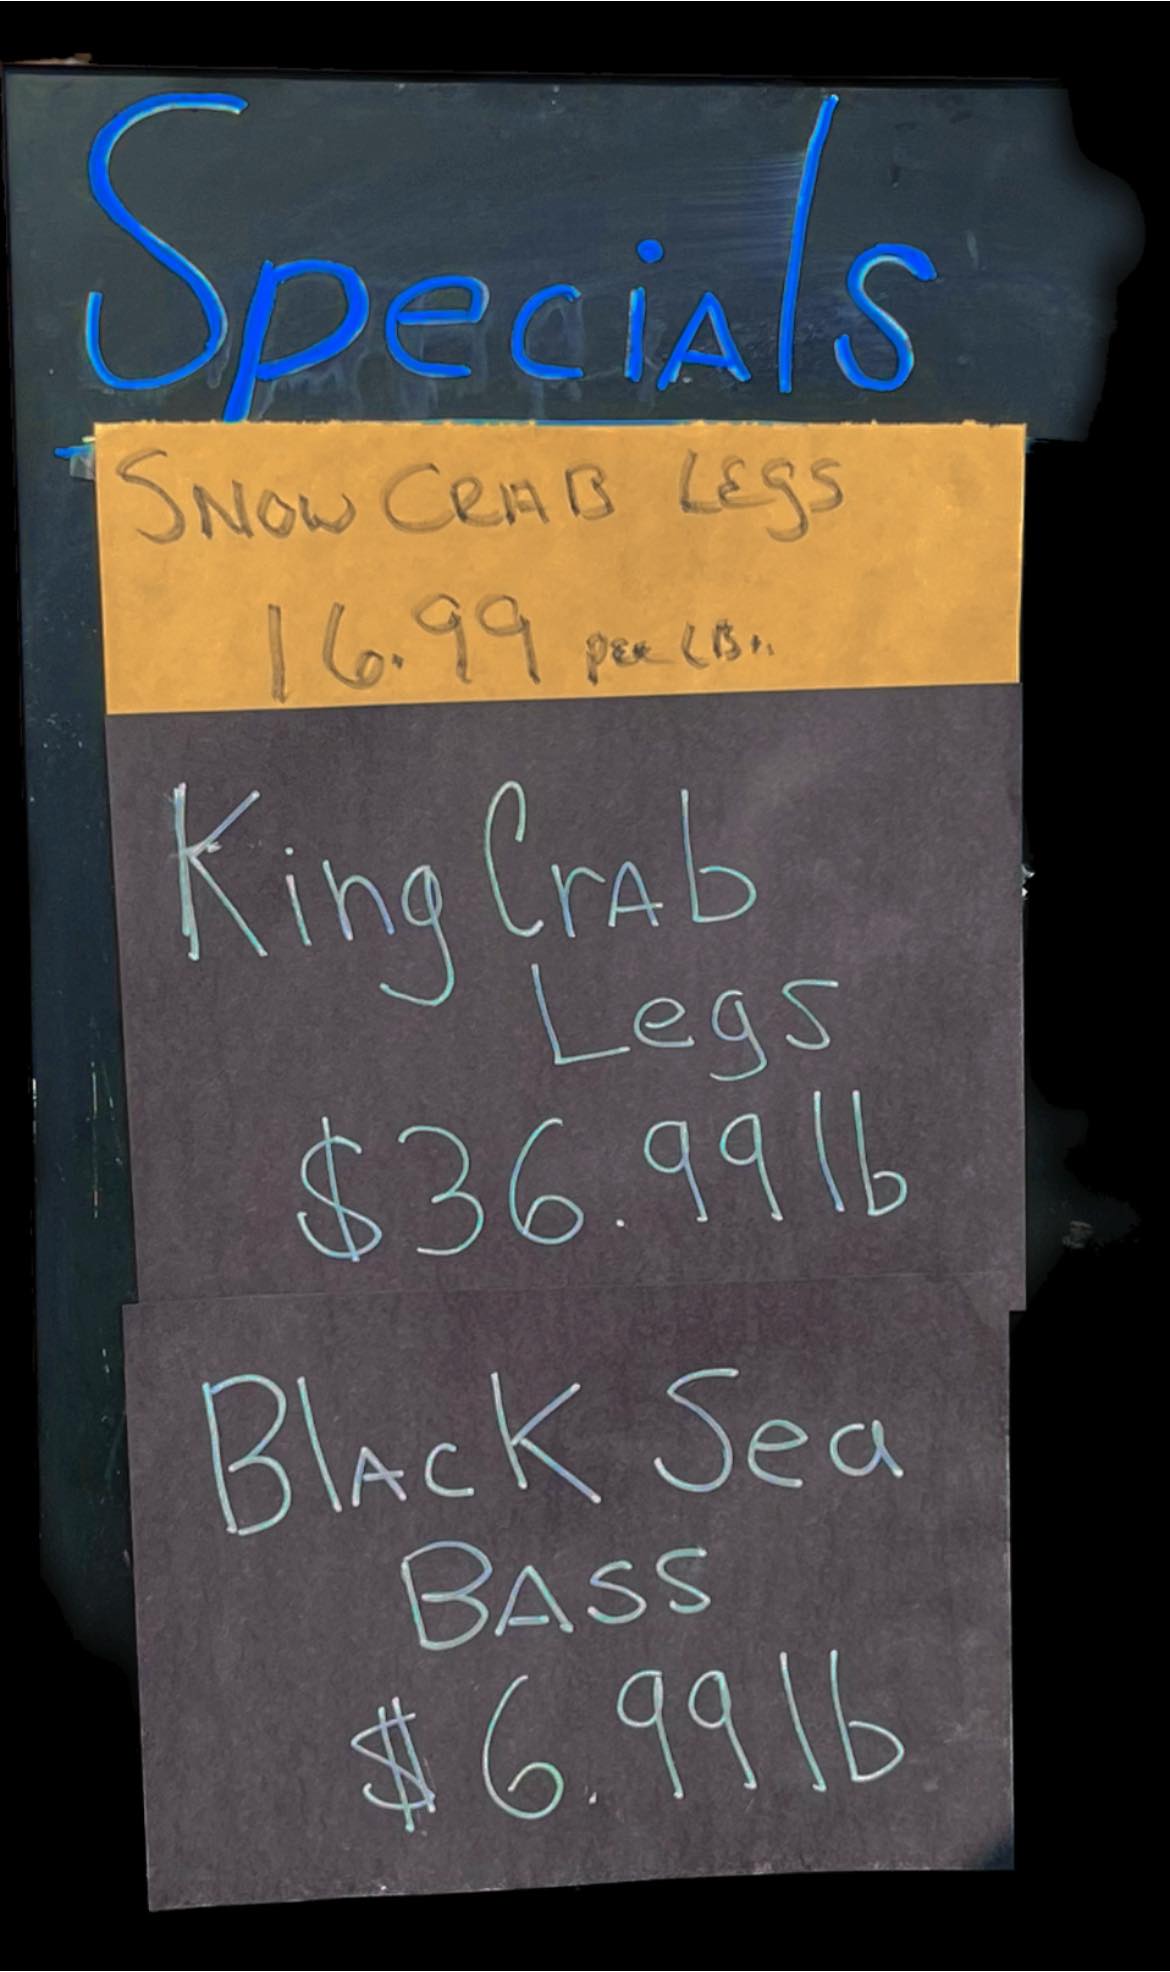 Specials
SNOW CRAB LEGS
16.99 per LB.
King Crab
Legs
$36.99 lb
Black Sea
BASS
$6.99 lb